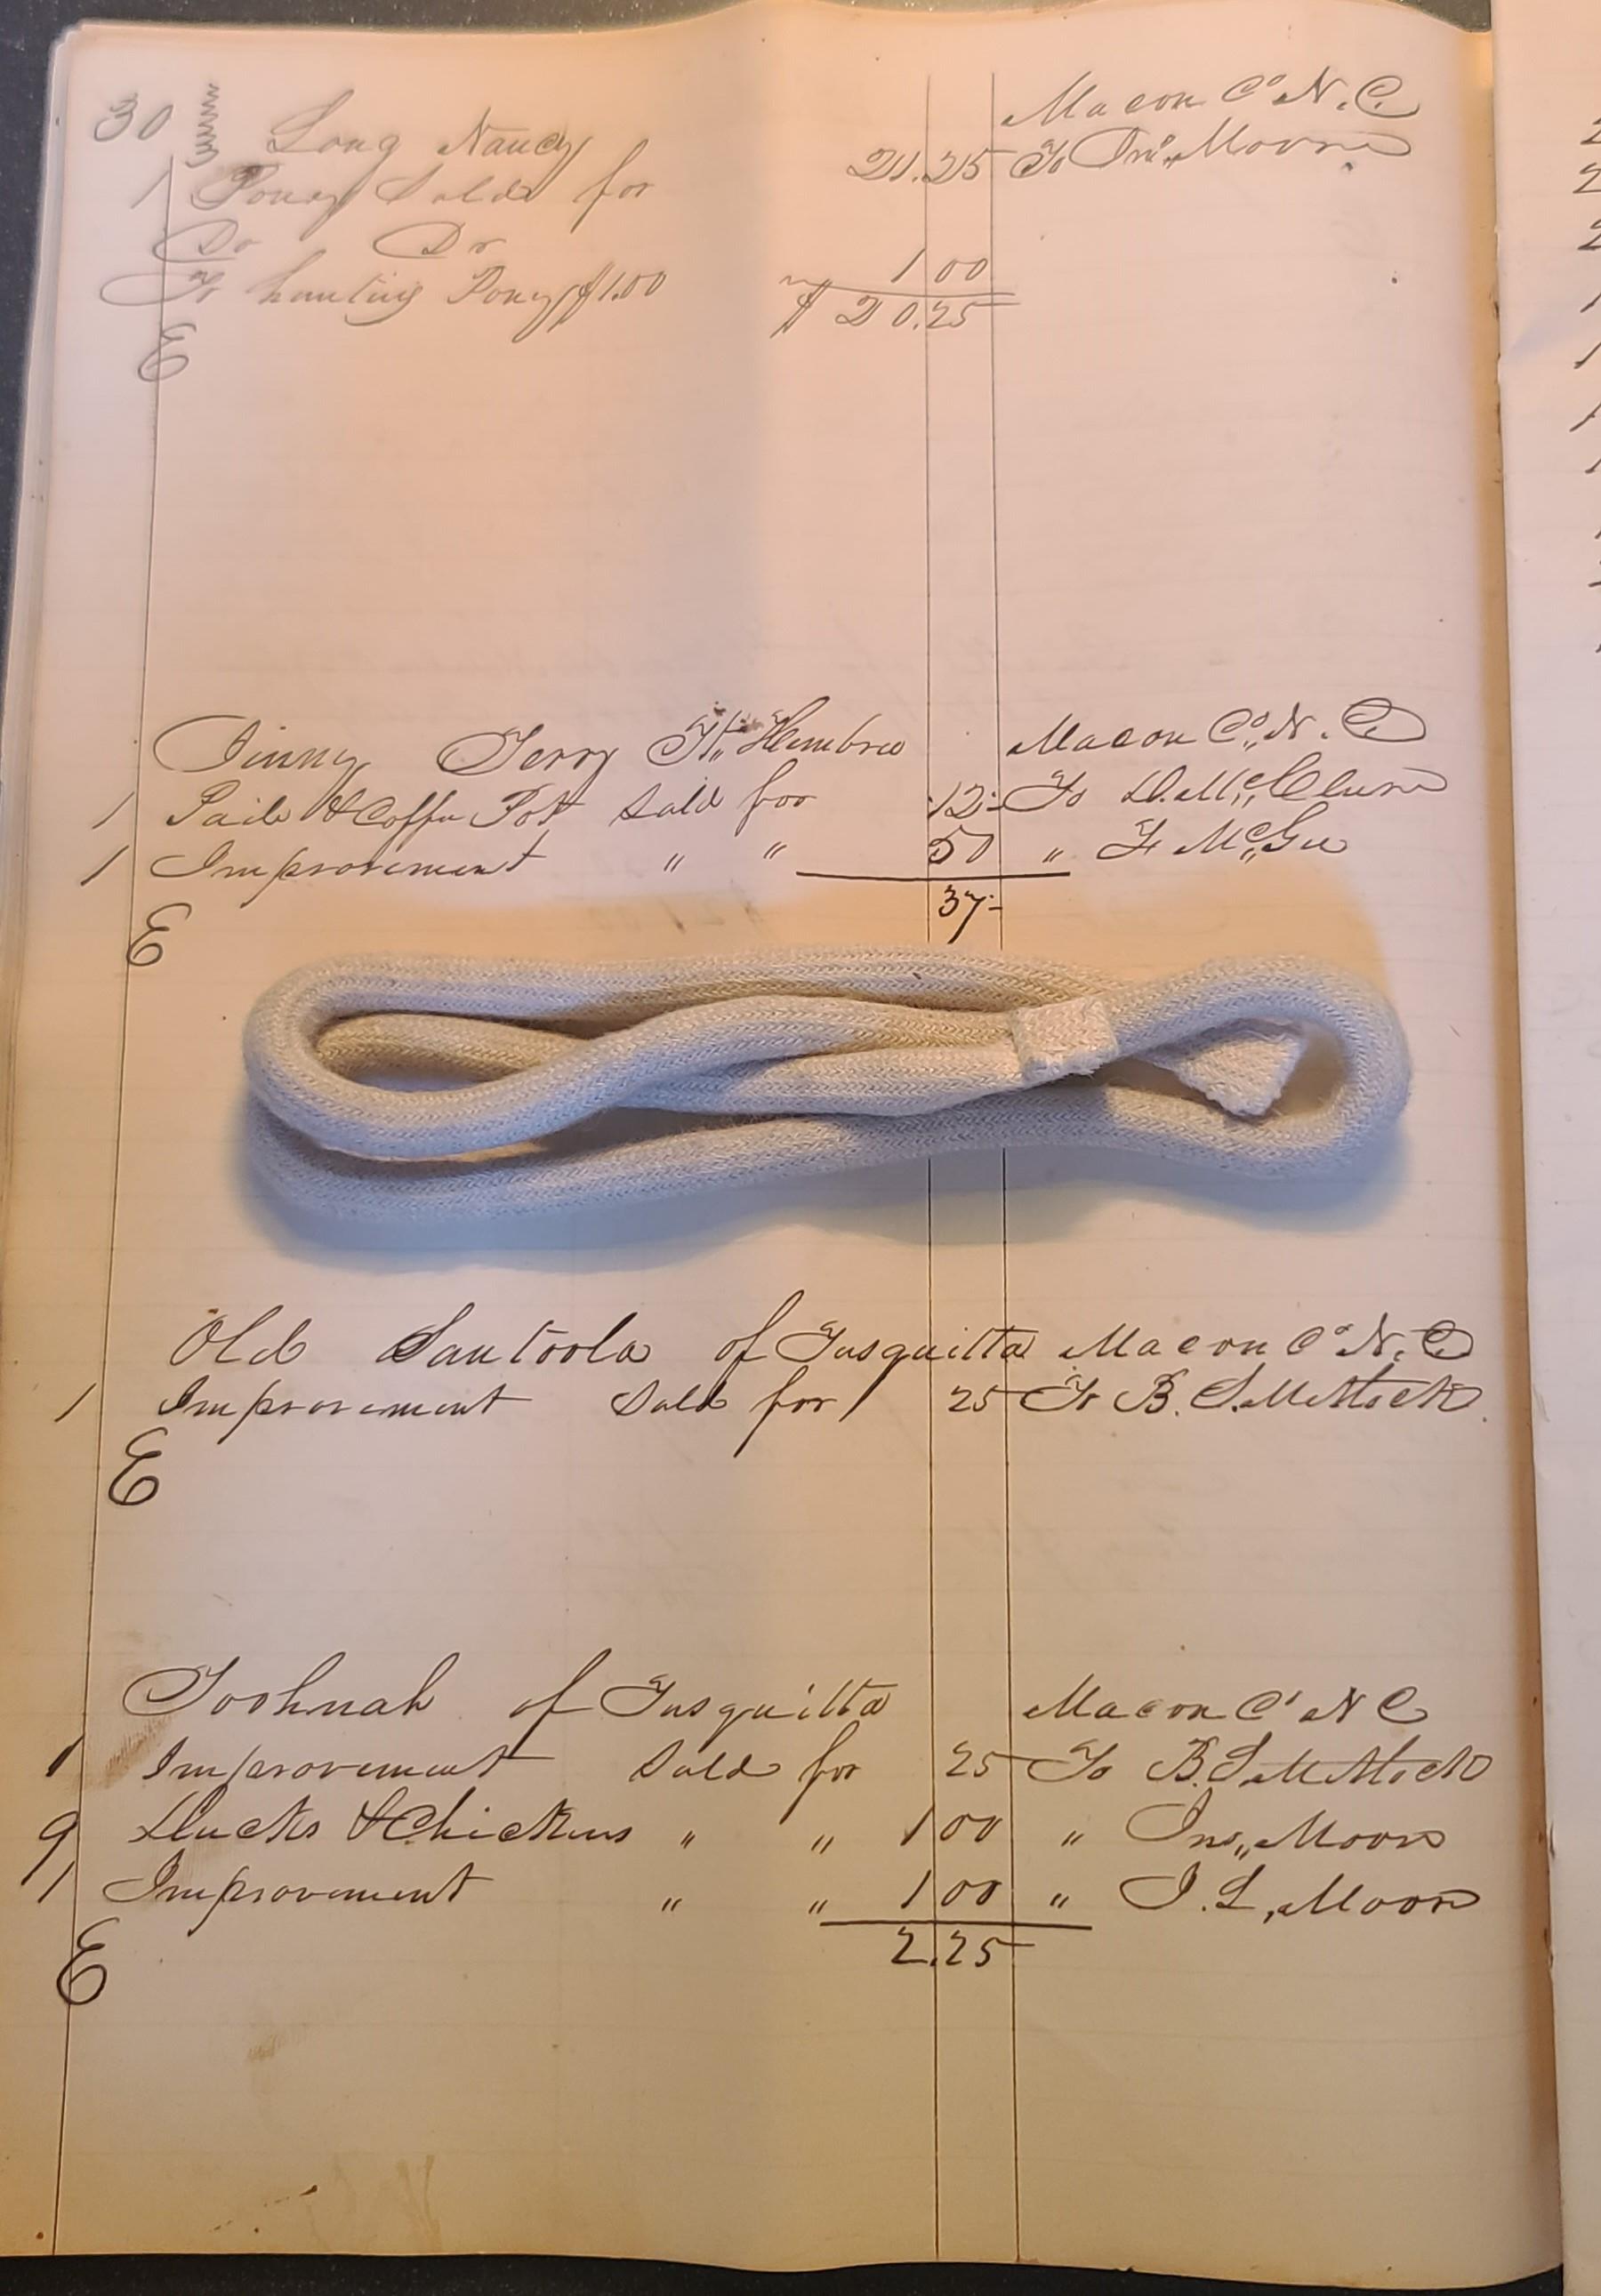 30 Long Nancy Macon Co N.C.
1 Poney Sold for 21.25 To Jno,, Moore
Do Dr
To hunting Poney $1.00 1 00
$ 20.25
E
Jinny Terry Ft,, Hembree Macon Co,, N.C.
1 Pail & Coffee Pot Sold for 12½ To D. Mc,,Clure
1 Improvement " " 50 " F Mc,,Gee
37½
E
Old Santoola of Tusquitta Macon Co N.C.
1 Improvement Sold for 25 To B. S. Mettock
E
Toohnah of Tusquitta Macon Co N C
1 Improvement Sold for 25 To B. S. Mettock
9 Ducks & Chickens " " 1 00 " Jno,, Moore
1 Improvement " " 1 00 " J. L, Moore
2.25
E